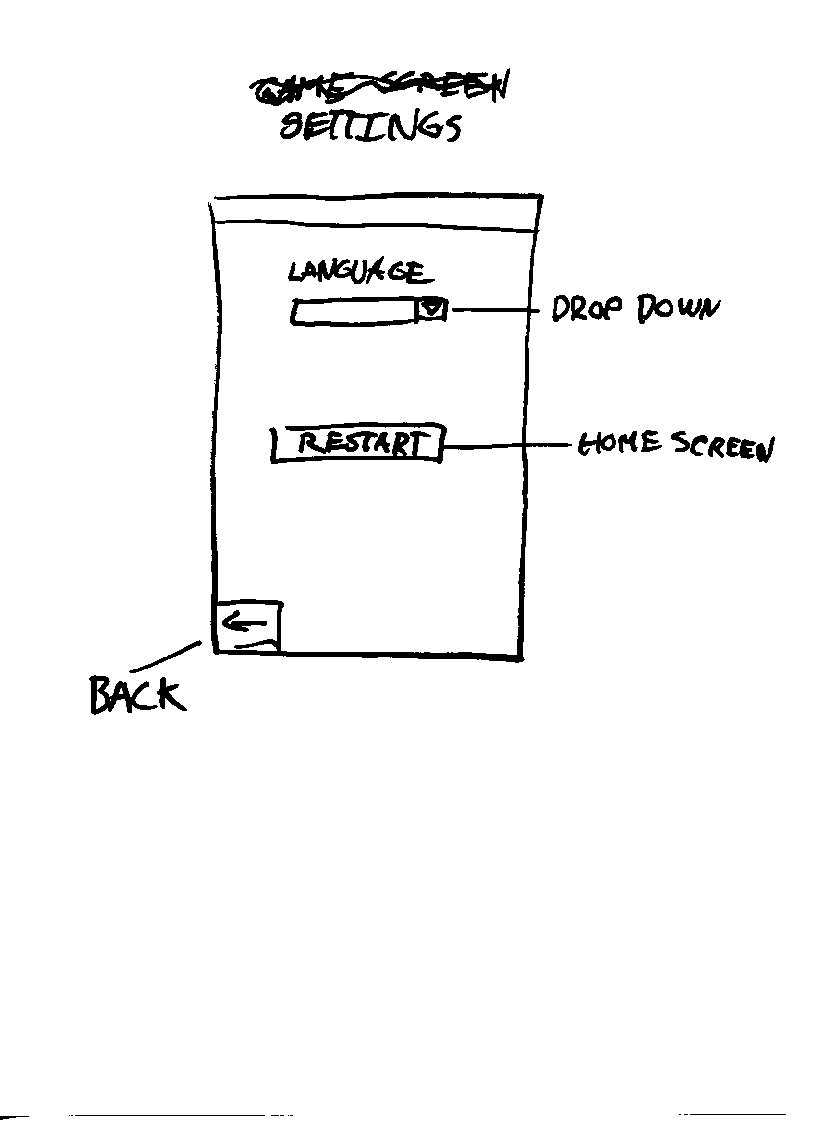 GAME SCREEN
SETTINGS
LANGUAGE
DROP DOWN
RESTART
HOME SCREEN
BACK